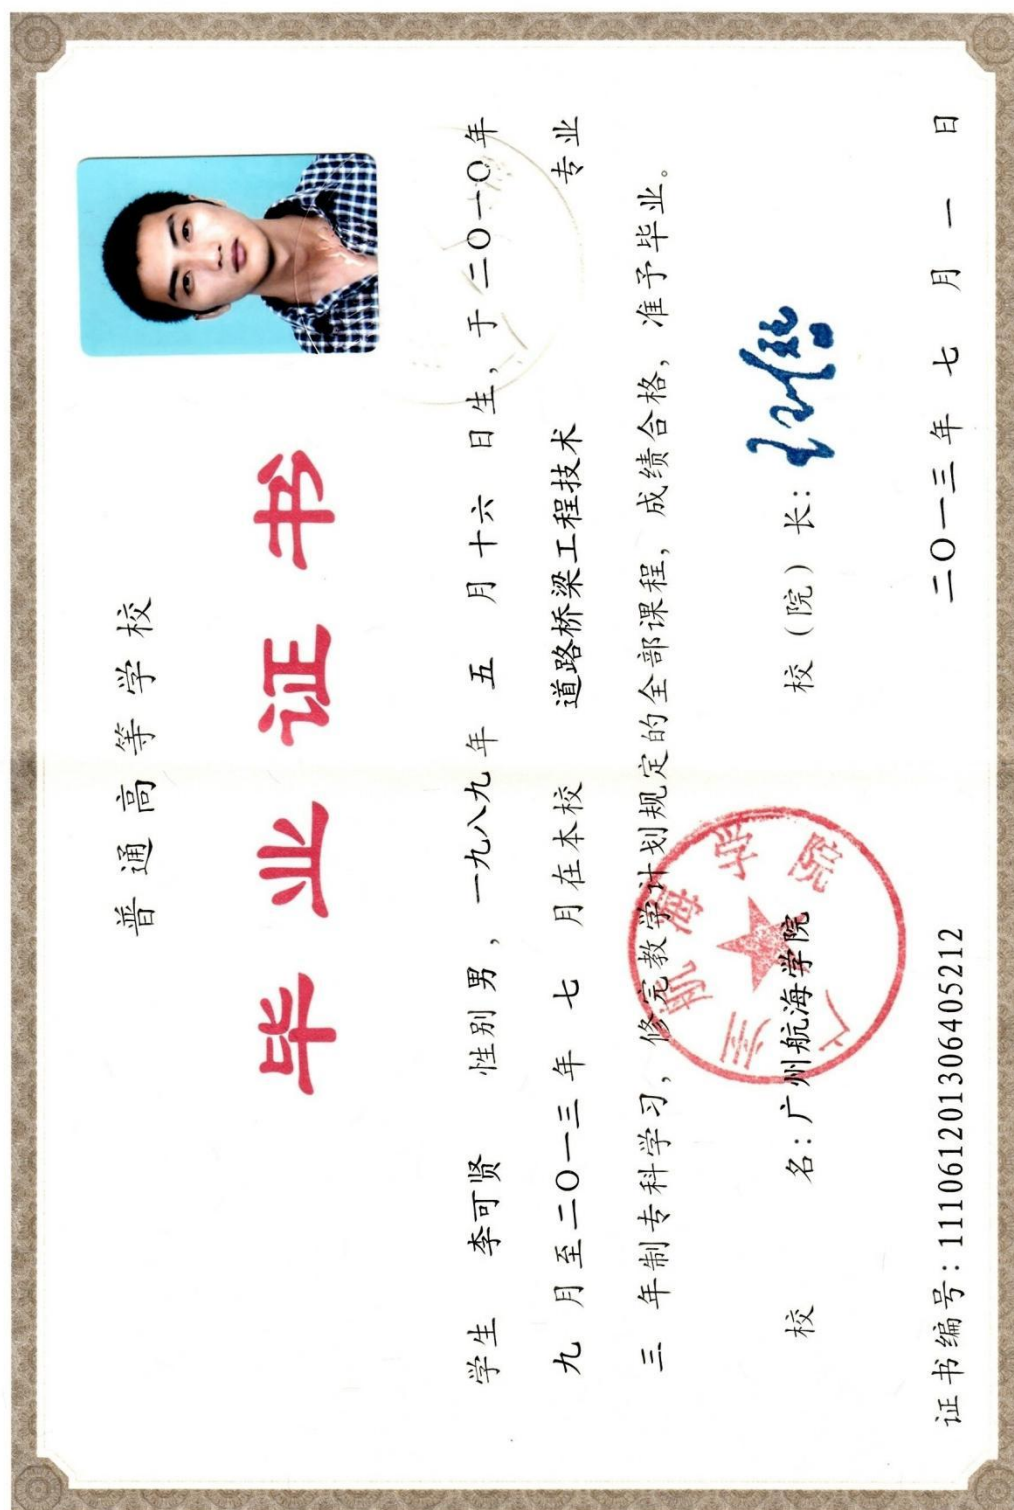 普通高等学校
毕业证书
学生 李可贤 性别男，一九八九年 五 月十六 日生，于二〇一〇年
九 月至二〇一三年 七 月在本校 道路桥梁工程技术 专业
三 年制专科学习，修完教学计划规定的全部课程，成绩合格，准予毕业。
校 名：广州航海学院 校（院）长：
广州航海学院
证书编号：111061201306405212 二〇一三年 七 月 一 日